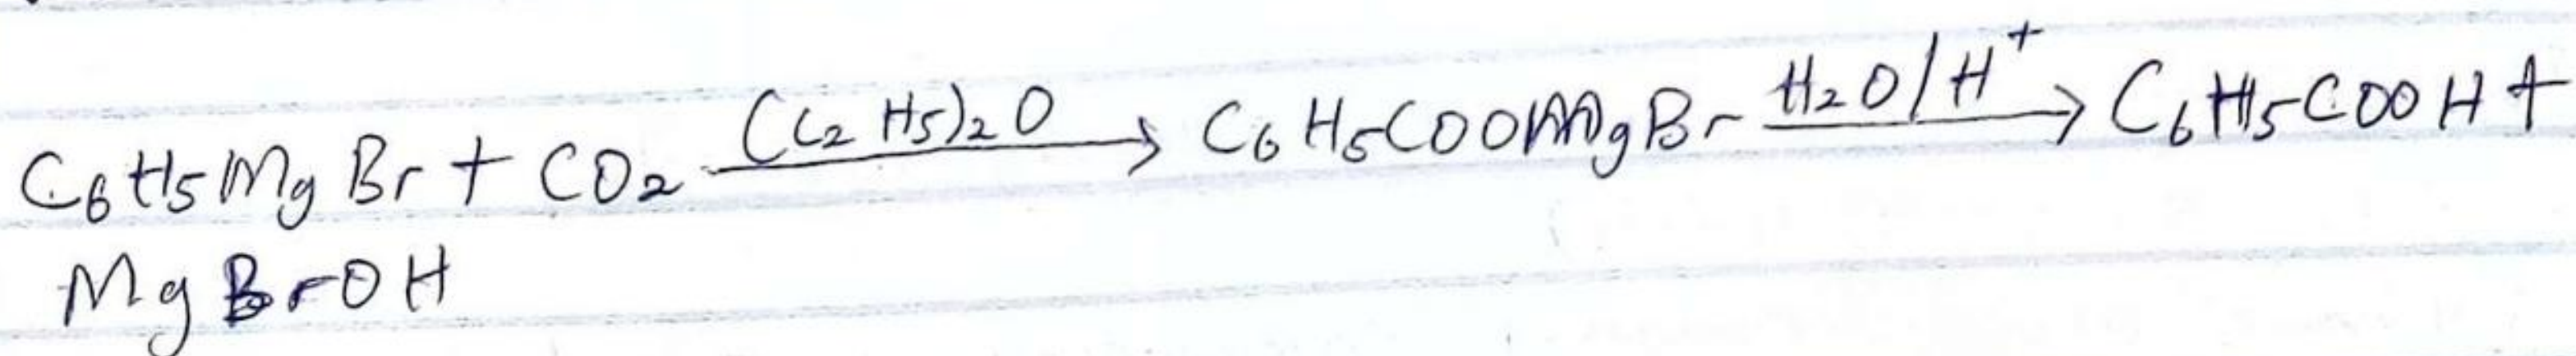 C6H5MgBr + CO2 (C2H5)2O → C6H5COOMgBr H2O/H+ → C6H5COOH +
MgBrOH